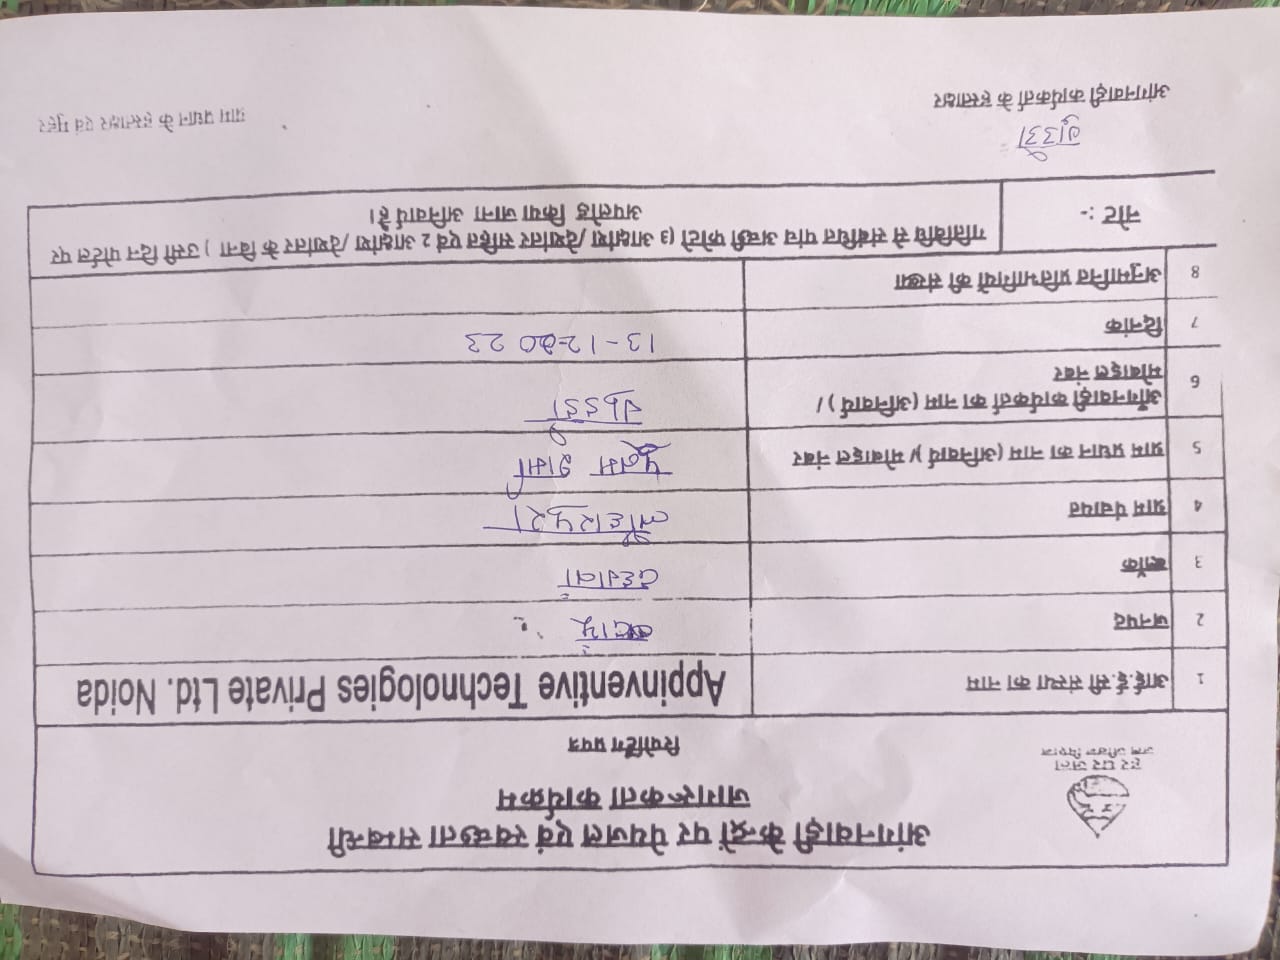 आंगनवाड़ी केन्द्रों पर पेयजल एवं स्वच्छता सम्बन्धी
जागरूकता कार्यक्रम
रिपोर्टिंग प्रपत्र
हर घर जल
जल जीवन मिशन
1 आई.ई.सी संस्था का नाम Appinventive Technologies Private Ltd. Noida
2 जनपद
3 ब्लॉक
4 ग्राम पंचायत
5 ग्राम प्रधान का नाम (अनिवार्य)/ मोबाइल नंबर पूनम शर्मा
6 आँगनवाड़ी कार्यकर्ता का नाम (अनिवार्य )/
मोबाइल नंबर
7 दिनांक 13-12-2023
8 अनुमानित प्रतिभागियों की संख्या
नोट :- गतिविधि से संबंधित पांच अच्छी फोटो (3 आक्षांश/देशांतर सहित एवं 2 आक्षांश/देशांतर के बिना ) उसी दिन पोर्टल पर
अपलोड किया जाना अनिवार्य है।
आंगनवाड़ी कार्यकर्ता के हस्ताक्षर
ग्राम प्रधान के हस्ताक्षर एवं मुहर